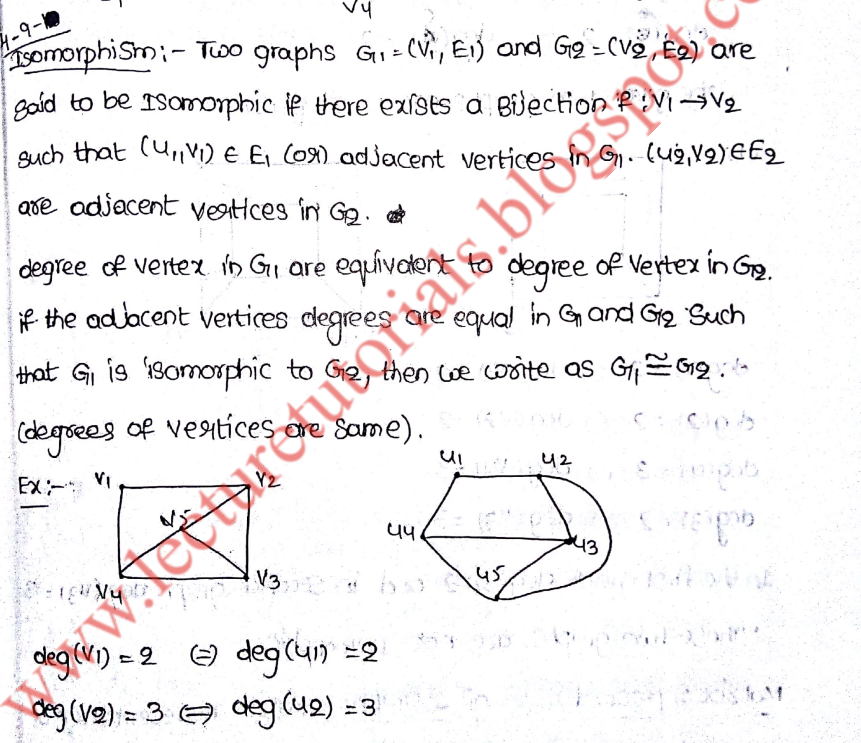 V4
Isomorphism:- Two graphs G1=(V1, E1) and G2=(V2, E2) are
said to be Isomorphic if there exists a Bijection f:V1→V2
such that (u1,v1) ∈ E1 (or) adjacent vertices in G1. (u2,v2)∈E2
are adjacent vertices in G2.
degree of vertex in G1 are equivalent to degree of vertex in G2.
if the adjacent vertices degrees are equal in G1 and G2 Such
that G1 is isomorphic to G2, then we write as G1≅G2.
(degrees of vertices are same).
Ex:-
V1 V2
V5
V4 V3
u1 u2
u4 u3
u5
deg(V1) = 2 ⇔ deg(u1) = 2
deg(V2) = 3 ⇔ deg(u2) = 3
www.lecturetutorials.blogspot.co